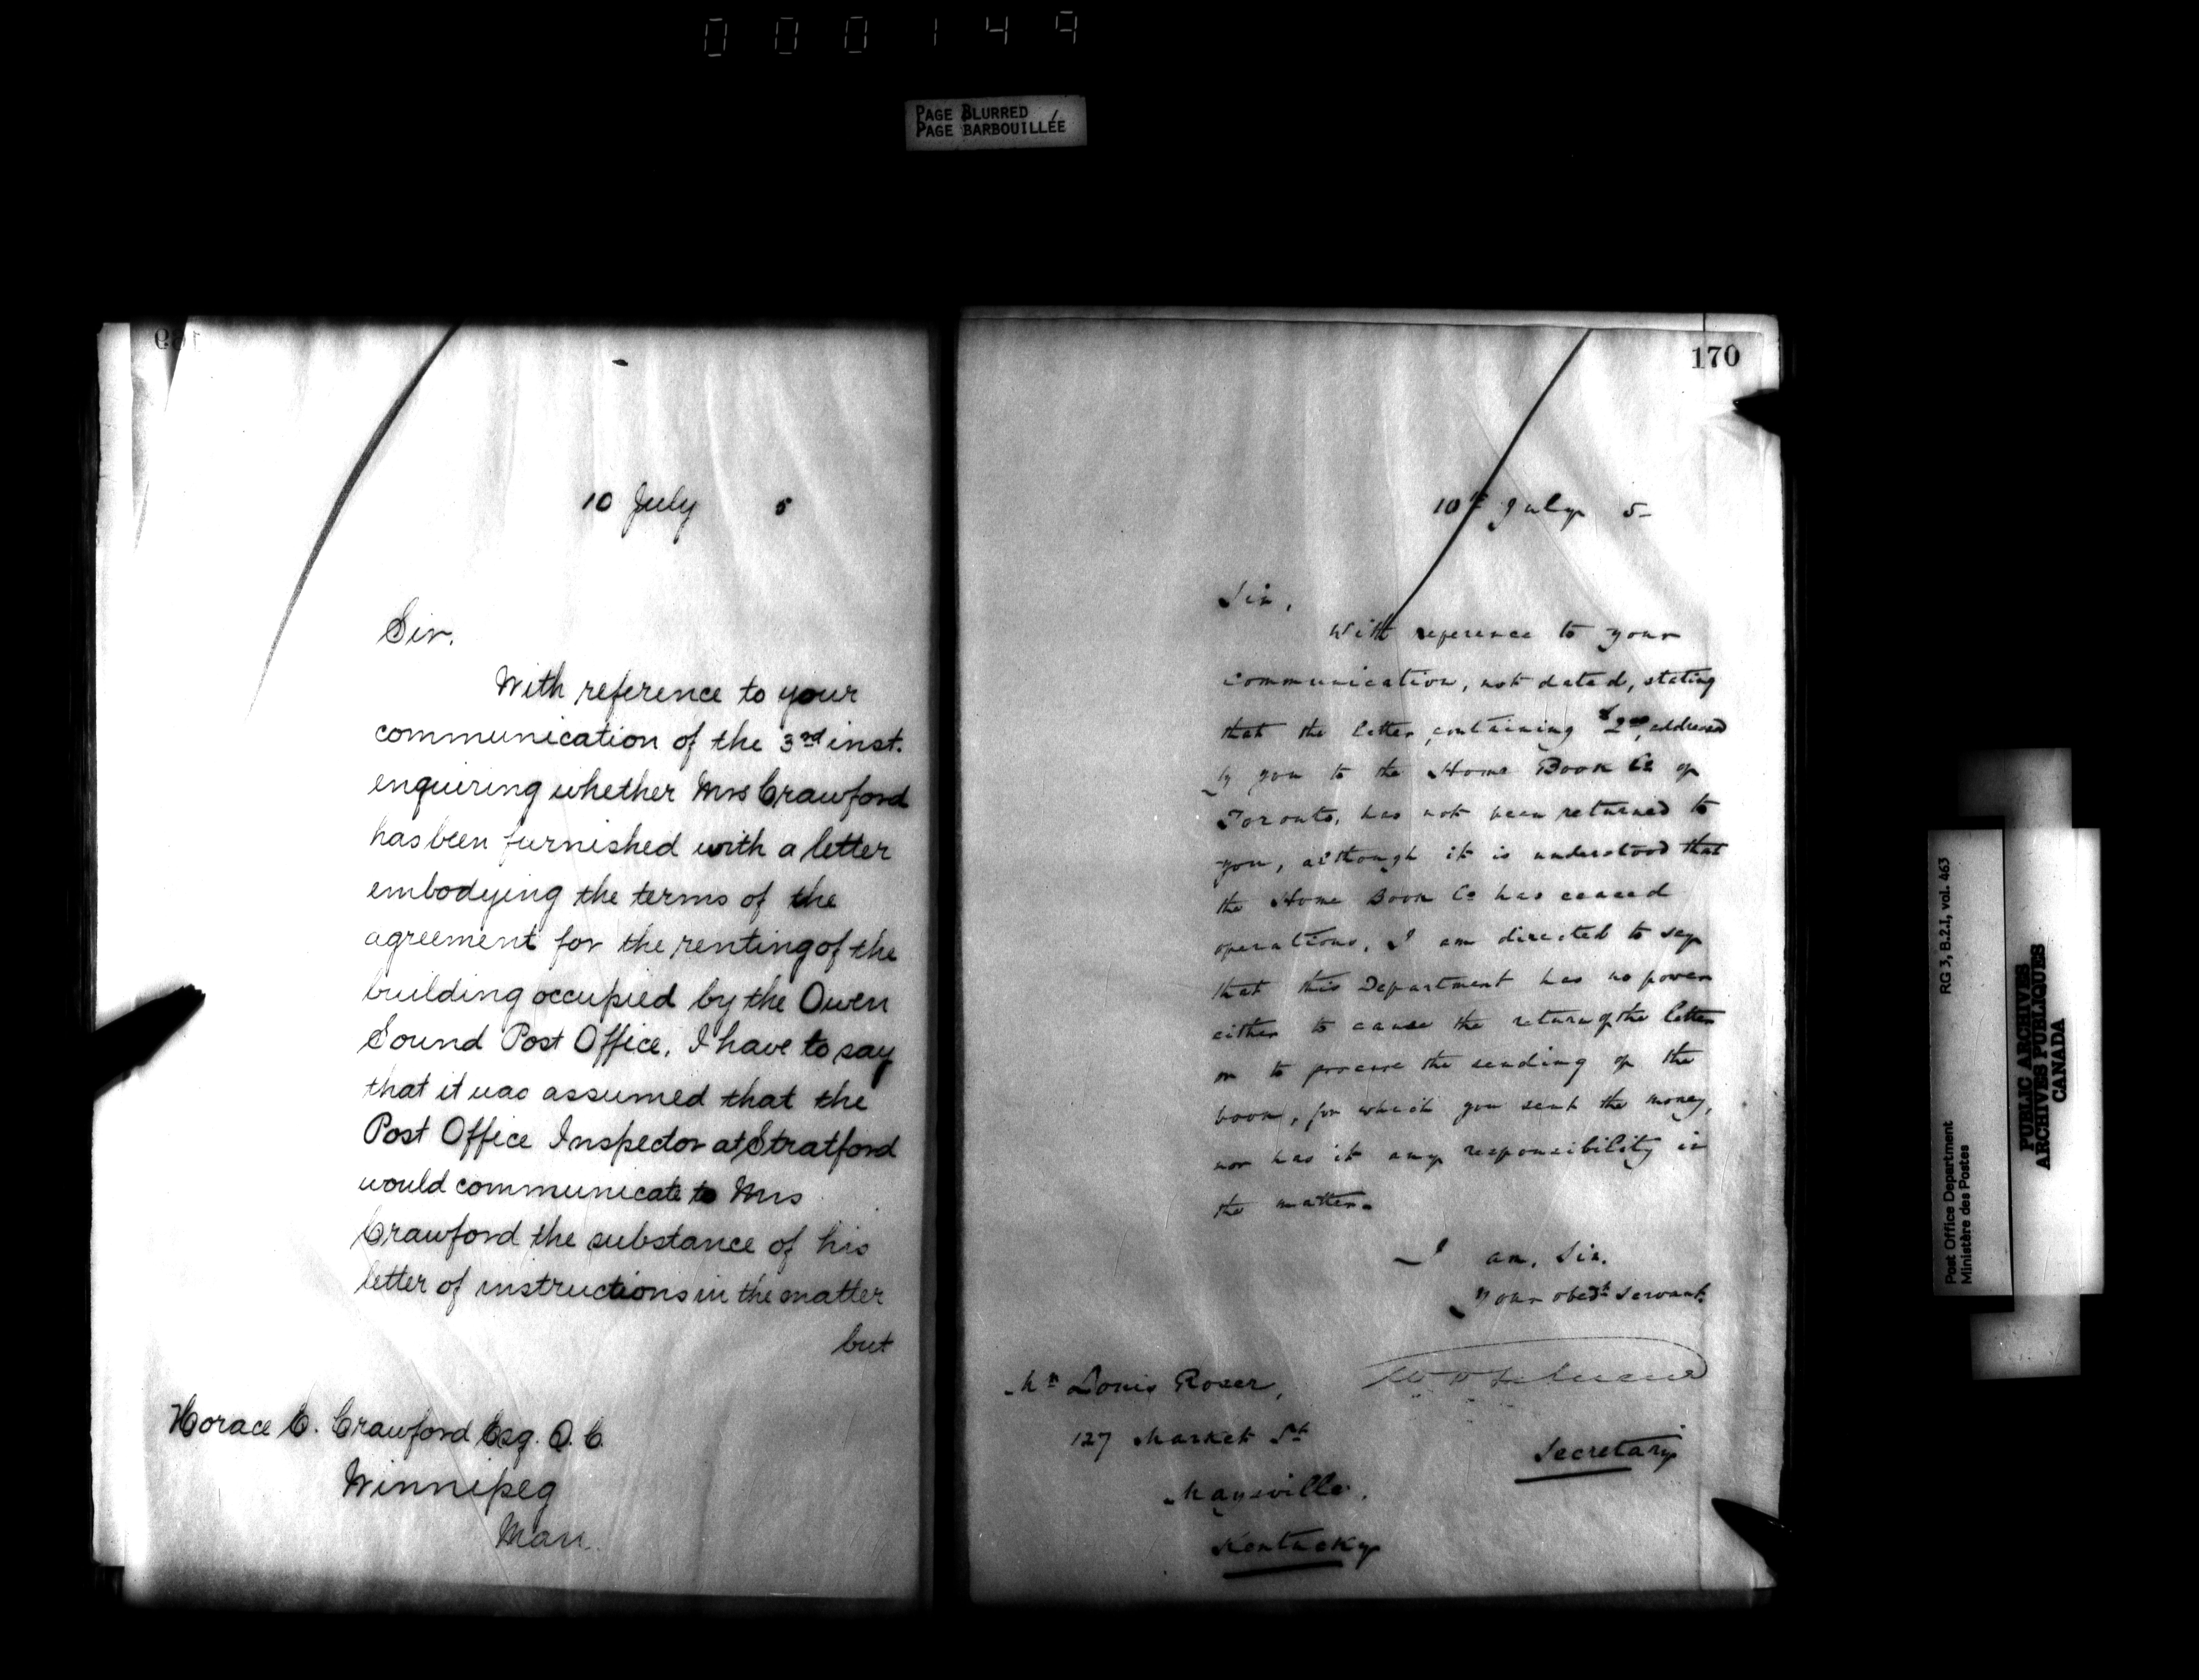 000149
PAGE BLURRED
PAGE BARBOUILLÉE
169
10 July 5
Sir.
With reference to your
communication of the 3rd inst.
enquiring whether Mrs Crawford
has been furnished with a letter
embodying the terms of the
agreement for the renting of the
building occupied by the Owen
Sound Post Office, I have to say
that it was assumed that the
Post Office Inspector at Stratford
would communicate to Mrs
Crawford the substance of his
letter of instructions in the matter
but
Horace E. Crawford Esq. Q. C.
Winnipeg
Man.
170
10th July 5
Sir,
With reference to your
communication, not dated, stating
that the letter containing $2.00, addressed
by you to the Home Book Co of
Toronto, has not been returned to
you, although it is understood that
the Home Book Co has ceased
operations, I am directed to say
that this Department has no power
either to cause the return of the letter
or to procure the sending of the
book, for which you sent the money,
nor has it any responsibility in
the matter.
I am, Sir,
Your obedt servant.
Secretary
Mr Louis Roser,
127 Market St
Maysville,
Kentucky
RG 3, B.2.I, vol. 463
Post Office Department
Ministère des Postes
PUBLIC ARCHIVES
ARCHIVES PUBLIQUES
CANADA